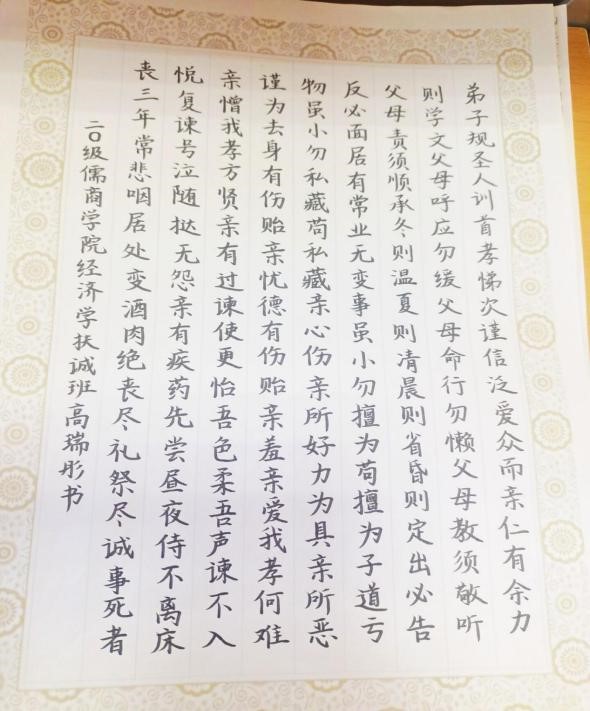 弟子规圣人训首孝悌次谨信泛爱众而亲仁有余力
则学文父母呼应勿缓父母命行勿懒父母教须敬听
父母责须顺承冬则温夏则凊晨则省昏则定出必告
反必面居有常业无变事虽小勿擅为苟擅为子道亏
物虽小勿私藏苟私藏亲心伤亲所好力为具亲所恶
谨为去身有伤贻亲忧德有伤贻亲羞亲爱我孝何难
亲憎我孝方贤亲有过谏使更怡吾色柔吾声谏不入
悦复谏号泣随挞无怨亲有疾药先尝昼夜侍不离床
丧三年常悲咽居处变酒肉绝丧尽礼祭尽诚事死者
二〇级儒商学院经济学扶诚班高瑞彤书